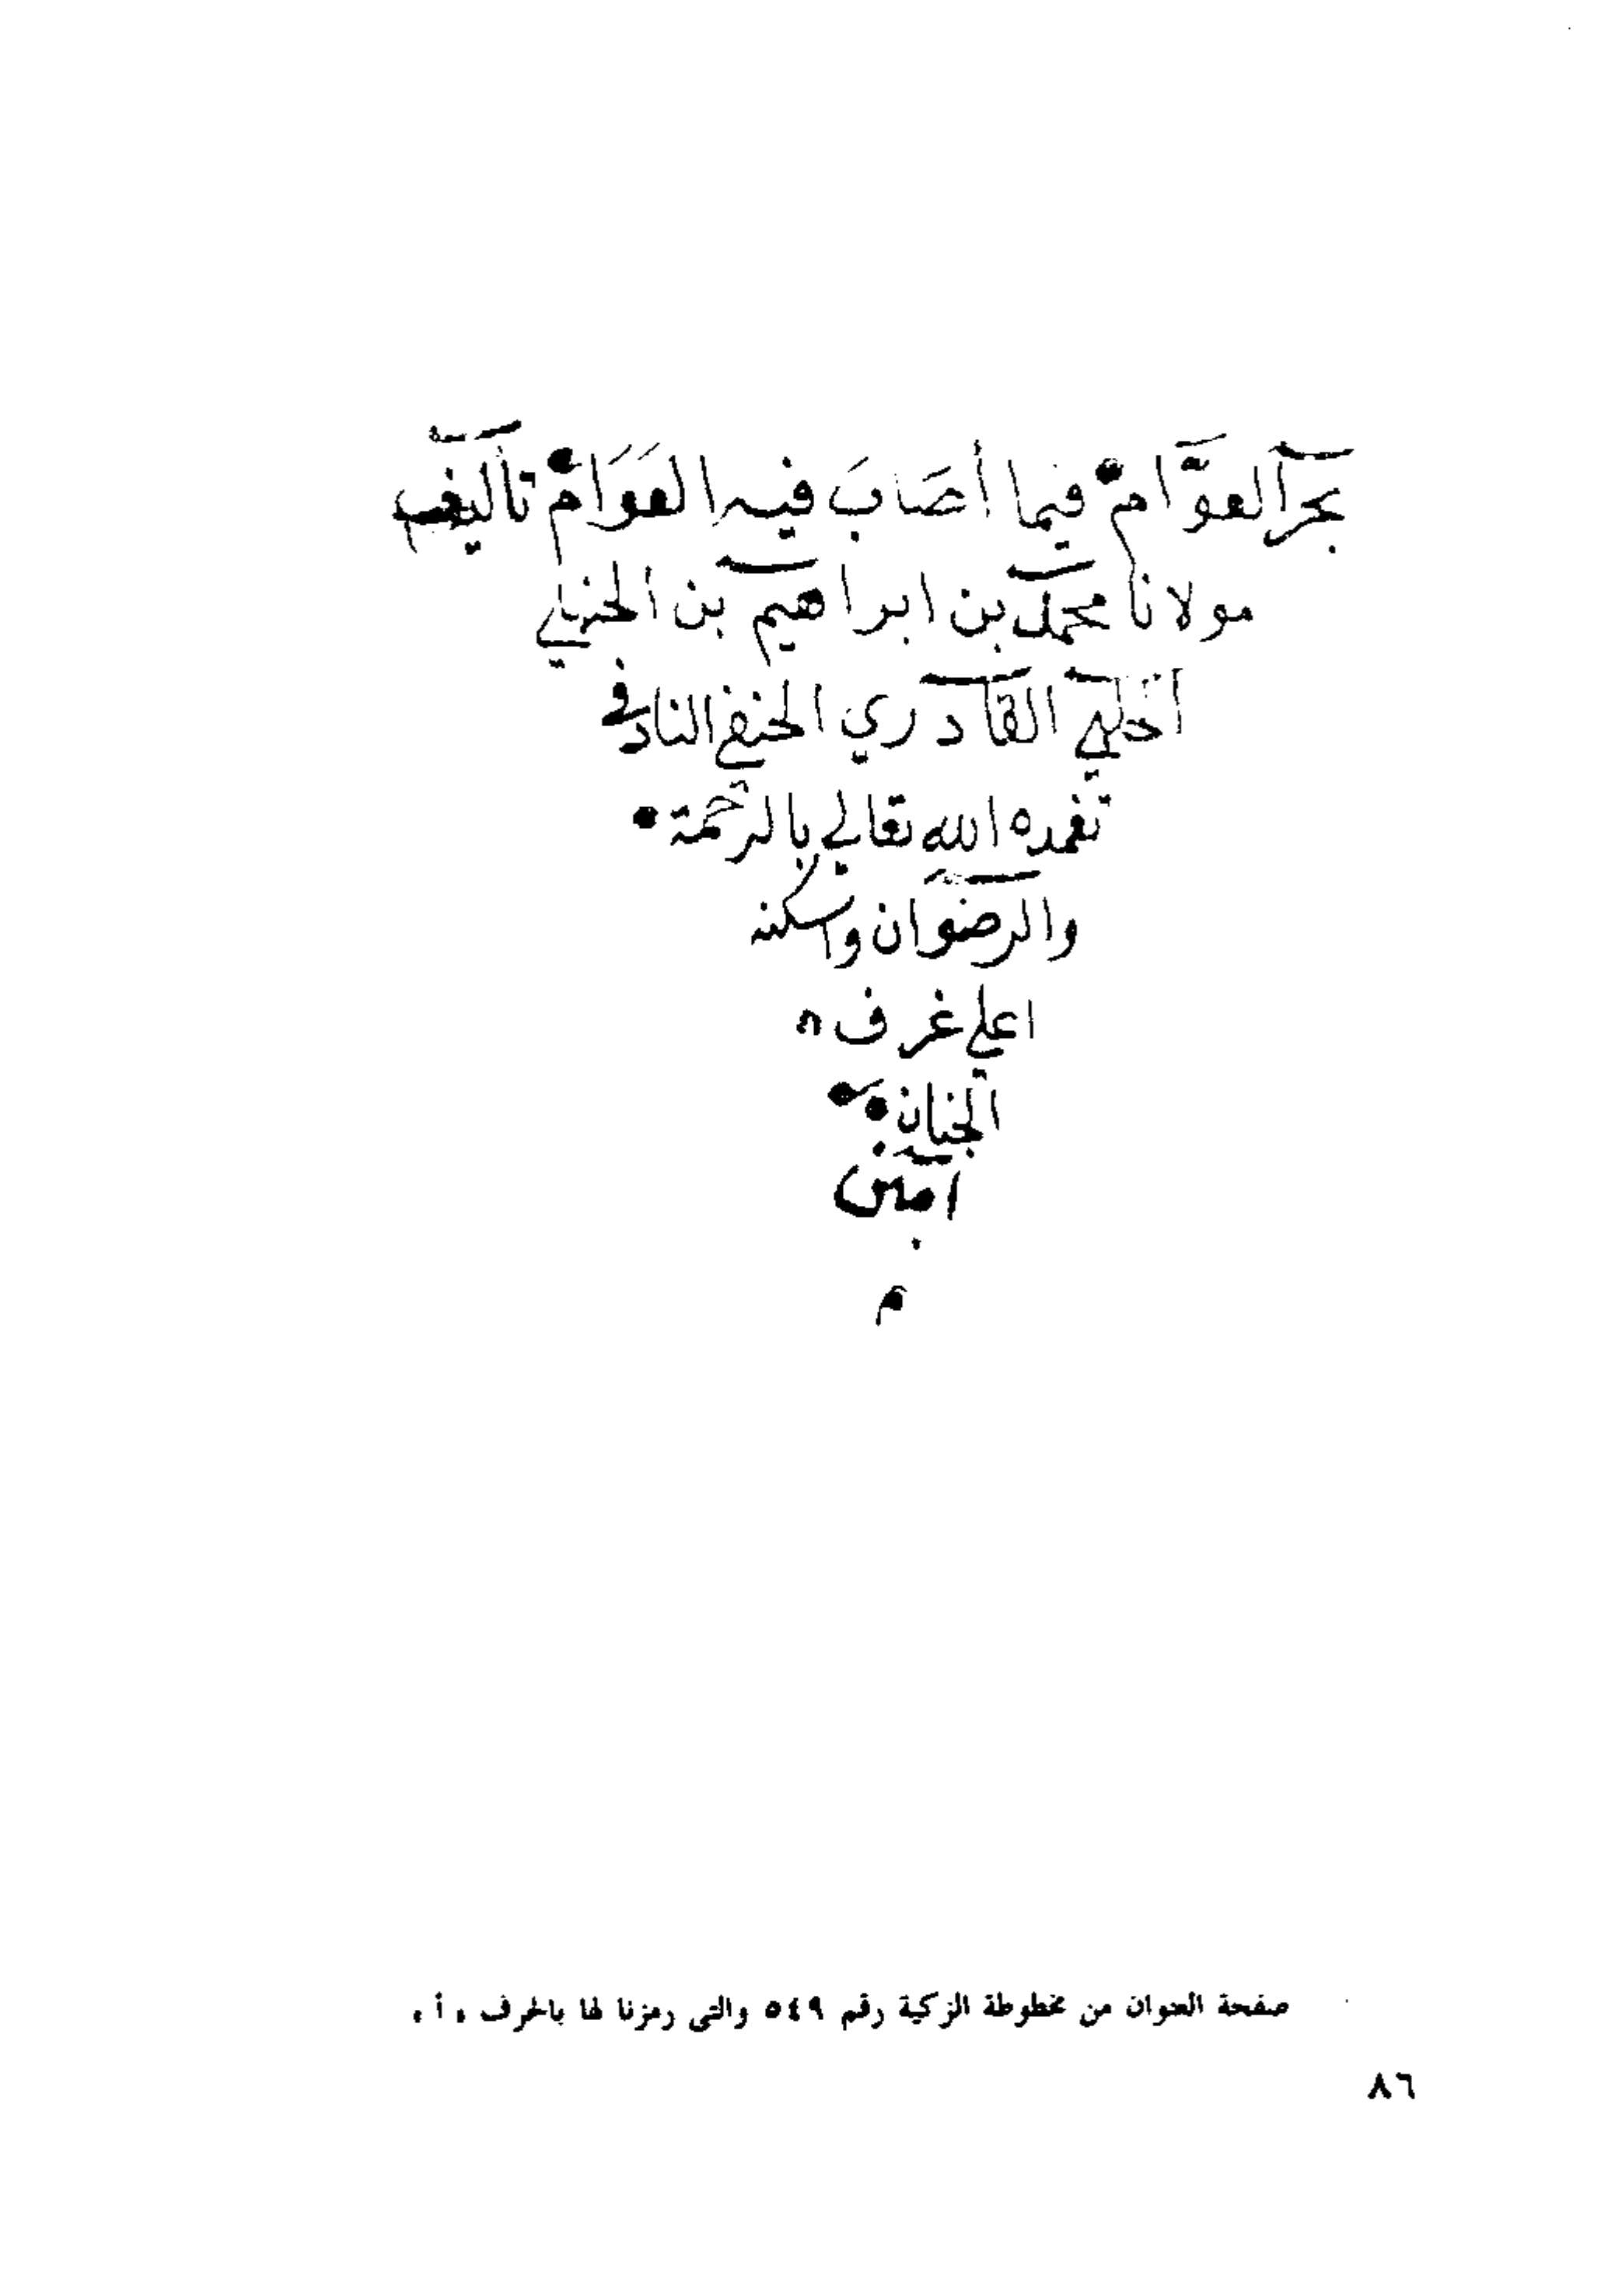 بحر العوَّام فيما أصَابَ فيه العَوَام تأليف
مولانا محمد بن ابراهيم بن الحنبلي
الحلبي القادري الحنفي التادفي
تغمده الله تعالي بالرحمة
والرضوان واسكنه
اعلي غرف
الجنان
آمين
م
صفحة العنوان من مخطوطة الزكية رقم ٥٤٩ والتى رمزنا لها بالحرف « أ »
٨٦